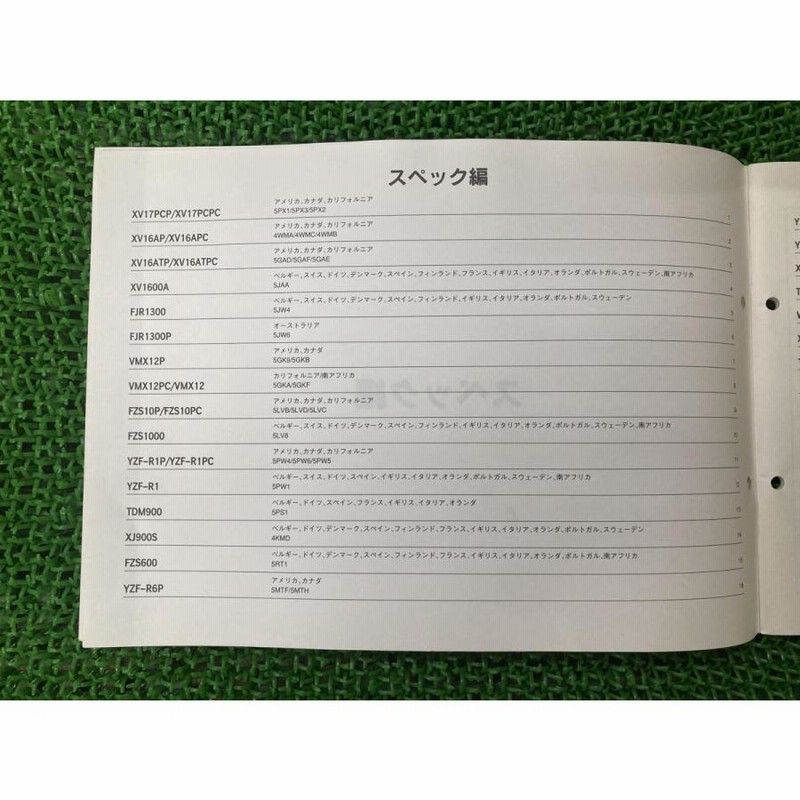 スペック編
アメリカ、カナダ、カリフォルニア
XV17PCP/XV17PCPC 5PX1/5PX3/5PX2 1
アメリカ、カナダ、カリフォルニア
XV16AP/XV16APC 4WMA/4WMC/4WMB 2
アメリカ、カナダ、カリフォルニア
XV16ATP/XV16ATPC 5GAD/5GAF/5GAE 3
ベルギー、スイス、ドイツ、デンマーク、スペイン、フィンランド、フランス、イギリス、イタリア、オランダ、ポルトガル、スウェーデン、南アフリカ
XV1600A 5JAA 4
ベルギー、スイス、ドイツ、デンマーク、スペイン、フィンランド、フランス、イギリス、イタリア、オランダ、ポルトガル、スウェーデン
FJR1300 5JW4 5
オーストラリア
FJR1300P 5JW6 6
アメリカ、カナダ
VMX12P 5GK9/5GKB 7
カリフォルニア/南アフリカ
VMX12PC/VMX12 5GKA/5GKF 8
アメリカ、カナダ、カリフォルニア
FZS10P/FZS10PC 5LVB/5LVD/5LVC 9
ベルギー、スイス、ドイツ、デンマーク、スペイン、フィンランド、フランス、イギリス、イタリア、オランダ、ポルトガル、スウェーデン、南アフリカ
FZS1000 5LV8 10
アメリカ、カナダ、カリフォルニア
YZF-R1P/YZF-R1PC 5PW4/5PW6/5PW5 11
ベルギー、スイス、ドイツ、スペイン、イギリス、イタリア、オランダ、ポルトガル、スウェーデン、南アフリカ
YZF-R1 5PW1 12
ベルギー、ドイツ、スペイン、フランス、イギリス、イタリア、オランダ
TDM900 5PS1 13
ベルギー、ドイツ、デンマーク、スペイン、フィンランド、フランス、イギリス、イタリア、オランダ、ポルトガル、スウェーデン
XJ900S 4KMD 14
ベルギー、ドイツ、デンマーク、スペイン、フィンランド、フランス、イギリス、イタリア、オランダ、ポルトガル、南アフリカ
FZS600 5RT1 15
アメリカ、カナダ
YZF-R6P 5MTF/5MTH 16